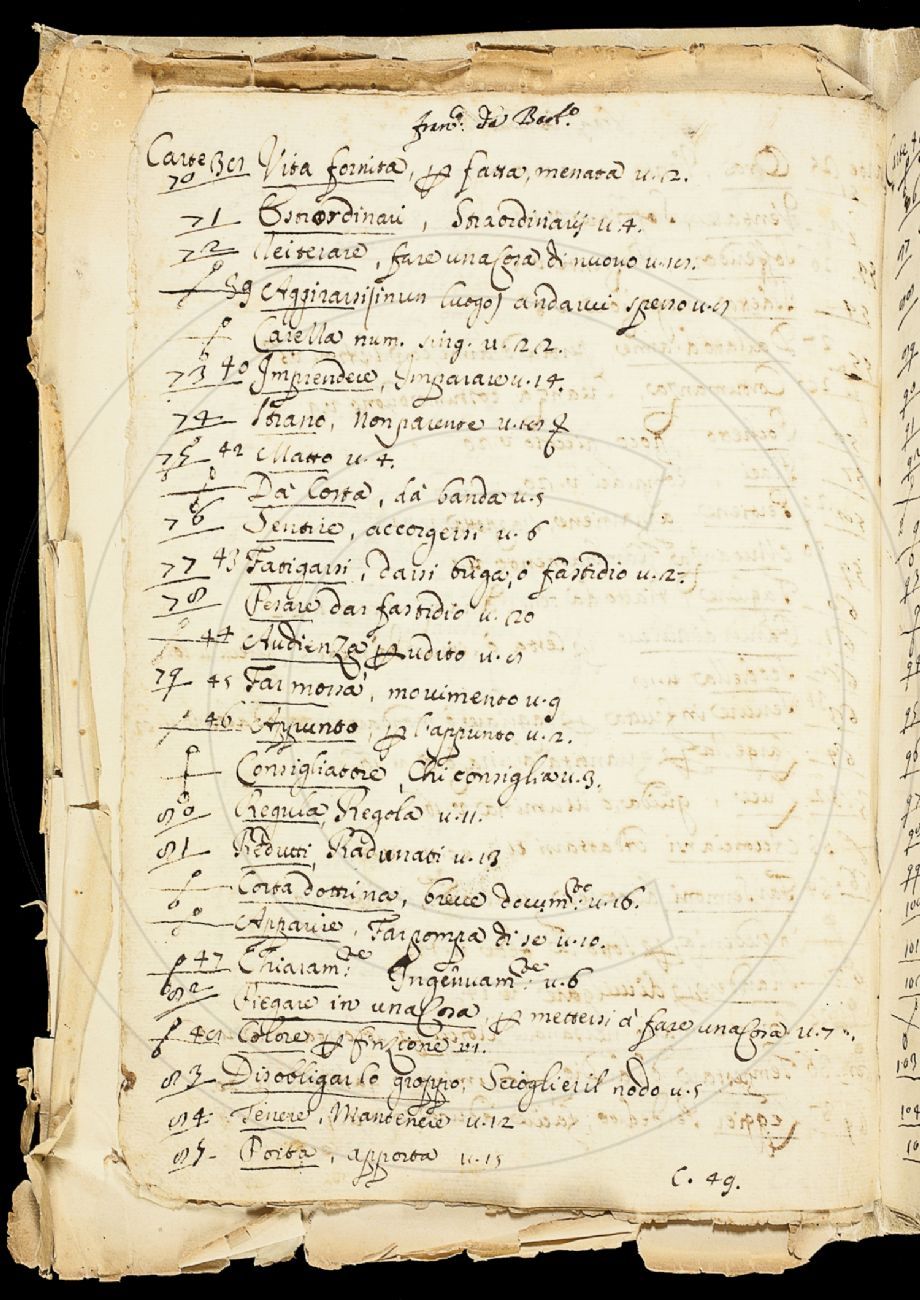 Fran.º da Barb.º
Carte 38 Vita fornita, p fatta, menata u. 2.
70
71 Estraordinari, Straordinarij u. 4.
72 Reiterare, fare una Cosa di nuovo u.
39 Aggirarsi (in un luogo) andarvi spesso u.
Carella num. sing. u. 22.
73 40 Imprendere, Imparare u. 14.
74 Strano, Non parente u.
75 42 Matto u. 4.
Da Costa, da banda u. 5
76 Sentire, accorgersi u. 6
77 43 Fatigarsi, darsi briga, ó fastidio u. 2.
78 Pesare dar fastidio u. 20
44 Audienza p udito u.
79 45 Far mossa, movimento u. 9
46 Appunto, p l'appunto u. 2.
Consigliatore, Chi consiglia u. 3.
80 Regula, Regola u. 11.
81 Redutti, Radunati u. 13
Corta dottrina, breve docum.to u. 16.
Apparire, Far pompa di se u. 10.
47 Chiaram.te Ingenuam.te u. 6
82 Piegare in una Cosa, p mettersi à fare una Cosa u. 7
Colore p finzione
83 Disobligar lo groppo, Sciogliere il nodo u. 5
84 Tenere, Mantenere u. 12
85 Porta, apporta u. 15
C. 49.